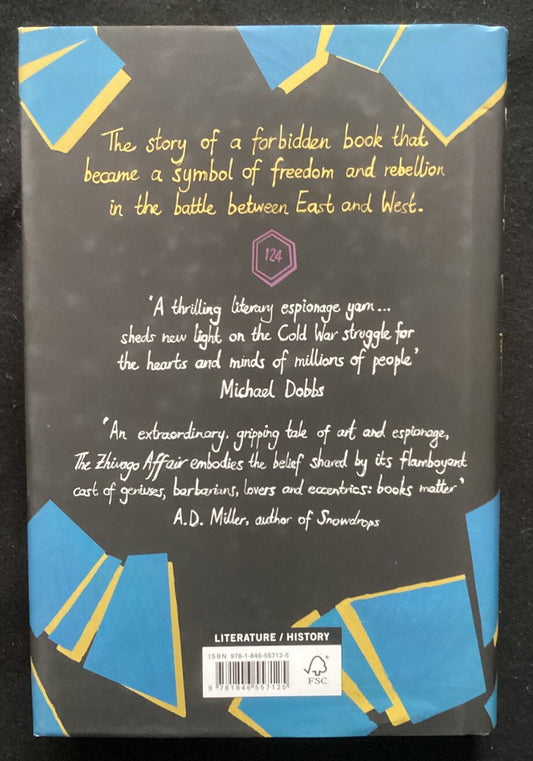 The story of a forbidden book that
became a symbol of freedom and rebellion
in the battle between East and West.
124
'A thrilling literary espionage yarn...
sheds new light on the Cold War struggle for
the hearts and minds of millions of people'
Michael Dobbs
'An extraordinary, gripping tale of art and espionage,
The Zhivago Affair embodies the belief shared by its flamboyant
cast of geniuses, barbarians, lovers and eccentrics: books matter'
A.D. Miller, author of Snowdrops
LITERATURE / HISTORY
ISBN 978-1-846-55712-5
9 781846 557125
FSC